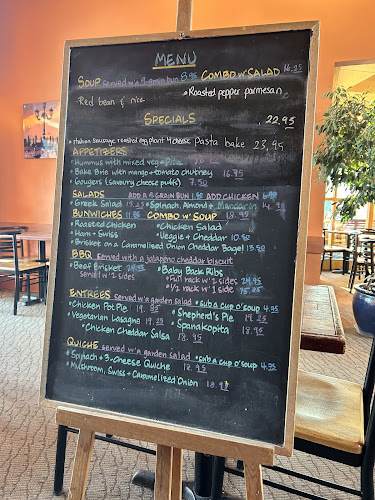 MENU
SOUP served w/ 9-grain bun 8.95 COMBO w/ SALAD 16.25
Red bean & rice • Roasted pepper parmesan
SPECIALS 22.95
• Italian Sausage roasted eggplant 4 cheese Pasta bake 23.95
APPETIZERS
• Hummus with mixed veg + Pita
• Bake Brie with mango + tomato chutney 16.95
• Gougers (savoury cheese puffs) 7.50
SALADS ADD A 9 GRAIN BUN ADD CHICKEN
• Greek Salad • Spinach, Almond + Mandarin
BUNWICHES 11.95 COMBO w/ SOUP 18.95
• Roasted Chicken • Chicken Salad
• Ham + Swiss • Veggie + Cheddar 10.50
• Brisket on a Caramelized Onion Cheddar Bagel 13.50
BBQ served with a jalapeño cheddar biscuit
• Beef Brisket • Baby Back Ribs
Served w/ 2 sides • Full rack w/ 2 sides
• 1/2 rack w/ 1 side
ENTRÉES served w/ a garden salad • sub a cup o' soup 4.95
• Chicken Pot Pie • Shepherd's Pie 19.25
• Vegetarian Lasagne 19.25 • Spanakopita 18.95
• Chicken Cheddar Salsa 18.95
QUICHE served w/ a garden salad • sub a cup o' soup 4.95
• Spinach + 3-Cheese Quiche 18.95
• Mushroom, Swiss + Caramelized Onion 18.95